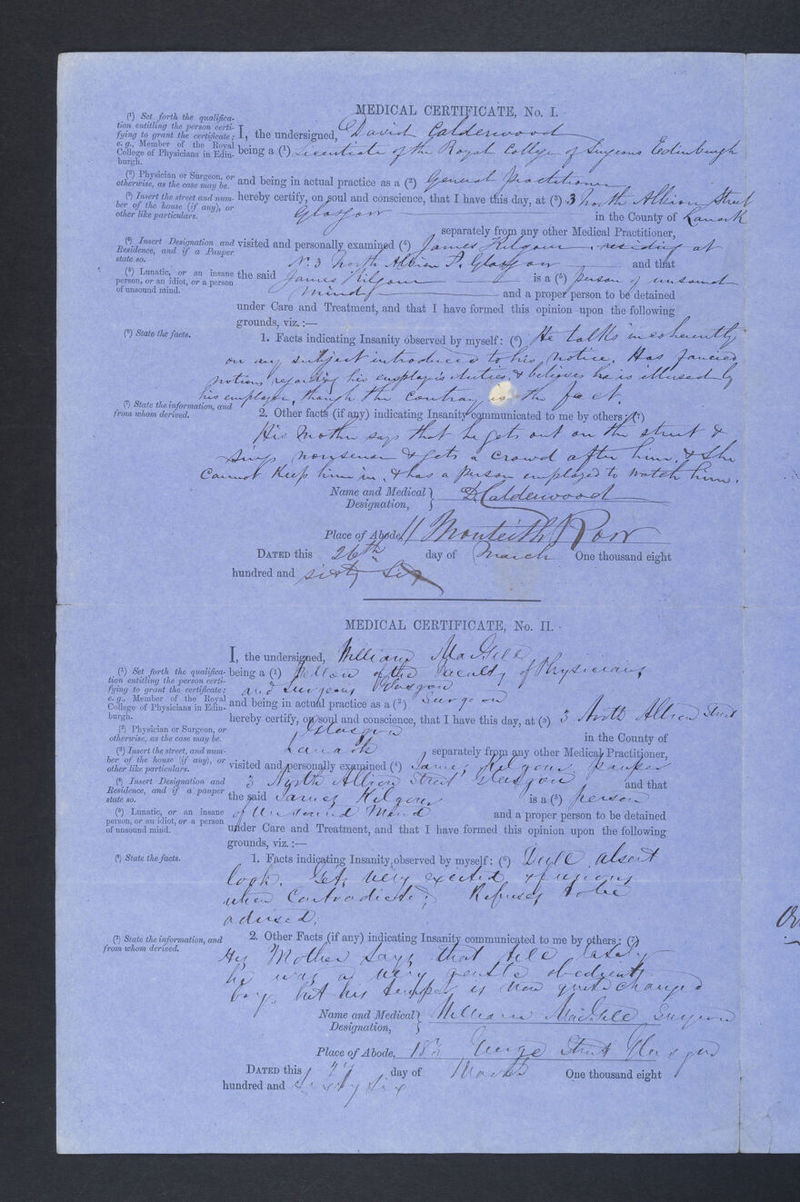 MEDICAL CERTIFICATE, No. I.
(1) Set forth the qualifica-
tion entitling the person certi-
fying to grant the certificate;
e. g., Member of the Royal
College of Physicians in Edin-
burgh.
I, the undersigned, David Calderwood
being a (1) Licentiate of the Royal College of Surgeons Edinburgh
(2) Physician or Surgeon, or
otherwise, as the case may be.
and being in actual practice as a (2) General Practitioner
(3) Insert the street and num-
ber of the house (if any), or
other like particulars.
hereby certify, on soul and conscience, that I have this day, at (3) 3 North Albion Street
Glasgow in the County of Lanark
separately from any other Medical Practitioner,
(4) Insert Designation and
Residence, and if a Pauper
state so.
visited and personally examined (4) James Kilgour, residing at
No. 3 North Albion St. Glasgow and that
(5) Lunatic, or an insane
person, or an idiot, or a person
of unsound mind.
the said James Kilgour is a (5) person of unsound
mind and a proper person to be detained
under Care and Treatment, and that I have formed this opinion upon the following
grounds, viz.:—
(6) State the facts.
1. Facts indicating Insanity observed by myself: (6) He talks incoherently
on any subject introduced to his notice. Has fancied
notions regarding his employer's duties, & believes he is illused by
his employer, though the contrary is the fact.
(7) State the information, and
from whom derived.
2. Other facts (if any) indicating Insanity communicated to me by others: (7)
His Mother says that he gets out on the street &
sings nonsense & gets a crowd after him, & She
Cannot Keep him in, & has a person employed to watch him.
Name and Medical
Designation,
D Calderwood
Place of Abode, 11 Monteith Row
DATED this 26th day of March One thousand eight
hundred and sixty Six
MEDICAL CERTIFICATE, No. II.
I, the undersigned, William
(1) Set forth the qualifica-
tion entitling the person certi-
fying to grant the certificate;
e. g., Member of the Royal
College of Physicians in Edin-
burgh.
being a (1) Fellow of the Faculty of Physicians
and Surgeons Glasgow
and being in actual practice as a (2) Surgeon
(2) Physician or Surgeon, or
otherwise, as the case may be.
hereby certify, on soul and conscience, that I have this day, at (3) 3 North Albion Street
Glasgow in the County of
(3) Insert the street, and num-
ber of the house (if any), or
other like particulars.
Lanark separately from any other Medical Practitioner,
visited and personally examined (4) James Kilgour, Pauper
(4) Insert Designation and
Residence, and if a pauper
state so.
3 North Albion Street Glasgow and that
the said James Kilgour is a (5) person
(5) Lunatic, or an insane
person, or an idiot, or a person
of unsound mind.
of Unsound Mind and a proper person to be detained
under Care and Treatment, and that I have formed this opinion upon the following
grounds, viz.:—
(6) State the facts.
1. Facts indicating Insanity, observed by myself: (6) Dull absent
look. Gets very excited & furious
when Contradicted; Refuses to be
advised;
(7) State the information, and
from whom derived.
2. Other Facts (if any) indicating Insanity communicated to me by others: (7)
His Mother says that till lately
he was a very gentle obedient
boy but his temper is now quite changed
Name and Medical
Designation,
William Surgeon
Place of Abode, George Street Glasgow
DATED this day of March One thousand eight
hundred and Sixty Six